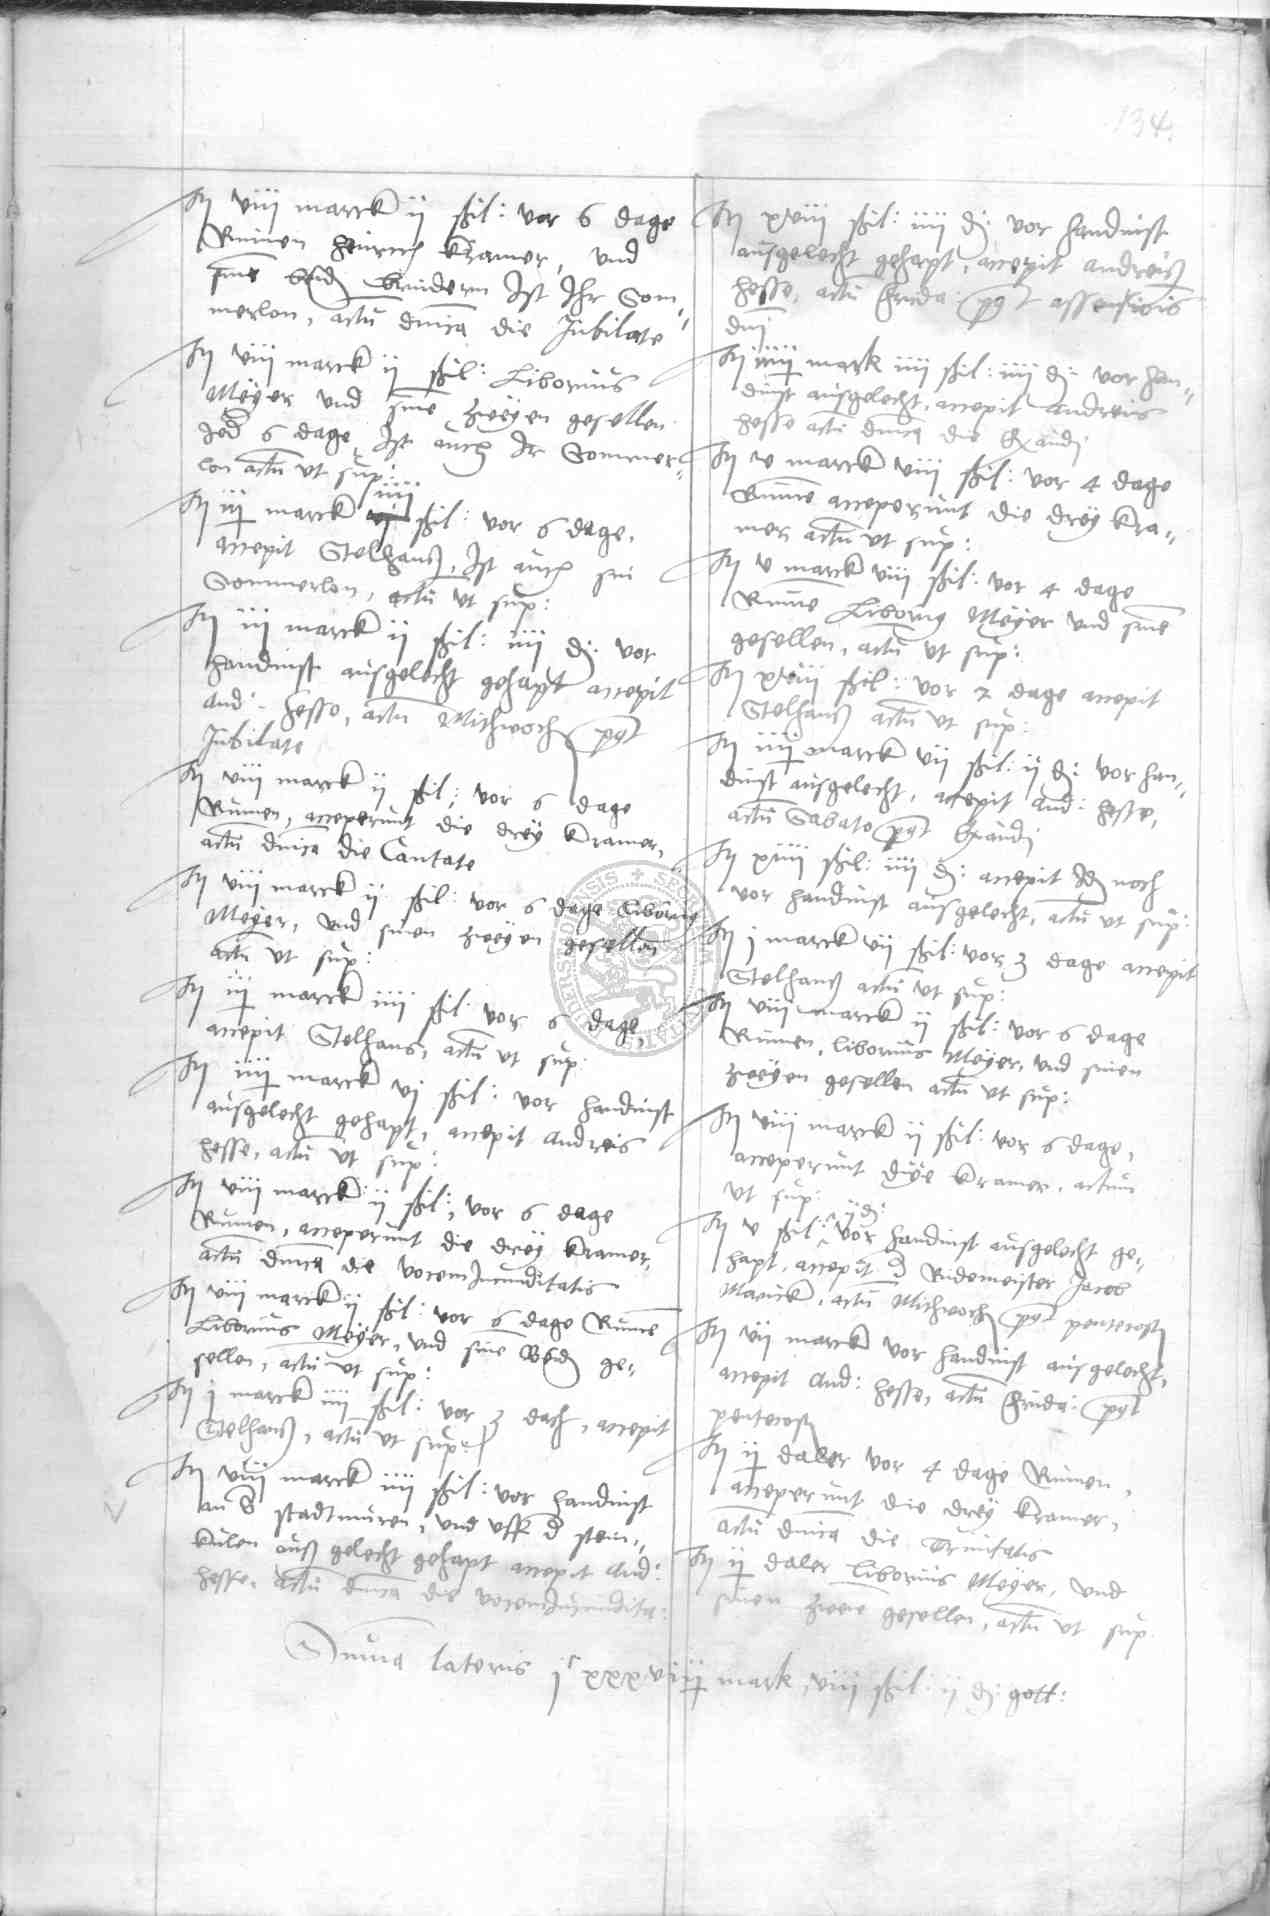 134
It viii marck ij ßil: vor 6 dage
Rumen Heinrich Kramer, und
sine beid Brüdern Ist Ihr Som„
merlon, actū dnica die Jubilate
It viii marck ij ßil: Liborius
Meÿer und sine zweÿen gesellen
Jed 6 dage, Ist auch Ir Sommer„
lon actū ut sup:
It iij marck iiii ßil: vor 6 dage,
accepit Stelhanß, Ist auch sin
Sommerlon, actū ut sup:
It iij marck ij ßil: iiii d: vor
handinst ausgelecht gehapt accepit
And: Hesse, actū Mithwoch pt
Jubilate
It viii marck ij ßil: vor 6 dage
Rumen, acceperunt die dreÿ Kramer,
actū dnica die Cantate
It viii marck ij ßil: vor 6 dage Liborius
Meÿer, und sinen zweÿen gesellen
actū ut sup:
It iij marck iiii ßil: vor 6 dage,
accepit Stelhans, actū ut sup:
It iiij marck vj ßil: vor handinst
ausgelecht gehapt, accepit Andreis
Hesse, actū ut sup:
It viii marck ij ßil: vor 6 dage
Rumen, acceperunt die dreÿ Kramer,
actū dnica die vocem Jucunditatis
It viii marck ij ßil: vor 6 dage Rumē
Liborius Meÿer, und sine Beid ge„
sellen, actū ut sup:
It j marck iiii ßil: vor 3 dach, accepit
Stelhanß, actū ut sup:
It viij marck iiii ßil: vor handinst
an d stadtmuren, und uff d stein„
kulen auß gelecht gehapt accepit And:
Hesse, actū dnica die vocem Jucundita:
It xviii ßil: iiii d: vor handinst
ausgelecht gehapt, accepit Andreiß
Hesse, actū frida: pt assensiois
dni
It iiij mark iiii ßil: iiii d: vor han„
dinst ausgelecht, accepit Andreis
Hesse actū dnica die Exaudi
It v marck viii ßil: vor 4 dage
Rumē acceperunt die dreÿ Kra„
mer actū ut sup:
It v marck viii ßil: vor 4 dage
Rumē Liborius Meÿer und sine
gesellen, actū ut sup:
It xviii ßil: vor 2 dage accepit
Stelhanß actū ut sup:
It iiij marck vii ßil: ij d: vor han„
dinst ausgelecht, accepit And: Hesse,
actū Sabato pt Exaudi
It xiiii ßil: iiii d: accepit Id noch
vor handinst ausgelecht, actū ut sup:
It j marck vii ßil: vor 3 dage accepit
Stelhanß actū ut sup:
It viii marck ij ßil: vor 6 dage
Rumen, Liborius Meÿer, und sinen
zweÿen gesellen actū ut sup:
It viii marck ij ßil: vor 6 dage,
acceperunt die Kramer, actum
ut sup:
It v ßil: ij d: vor handinst ausgelecht ge„
hapt, accepit d Ridemeister Jacob
Marick, actū Mithwoch pt pentecost
It vij marck vor handinst ausgelecht,
accepit And: Hesse, actū frida: pt
pentecost
It ij daler vor 4 dage Rumen,
acceperunt die dreÿ Kramer,
actū dnica die Trinitatis
It ij daler Liborius Meÿer, und
sinen zweie gesellen, actū ut sup
Suma lateris jc xxxviij mark, viii ßil: ij d: gott: